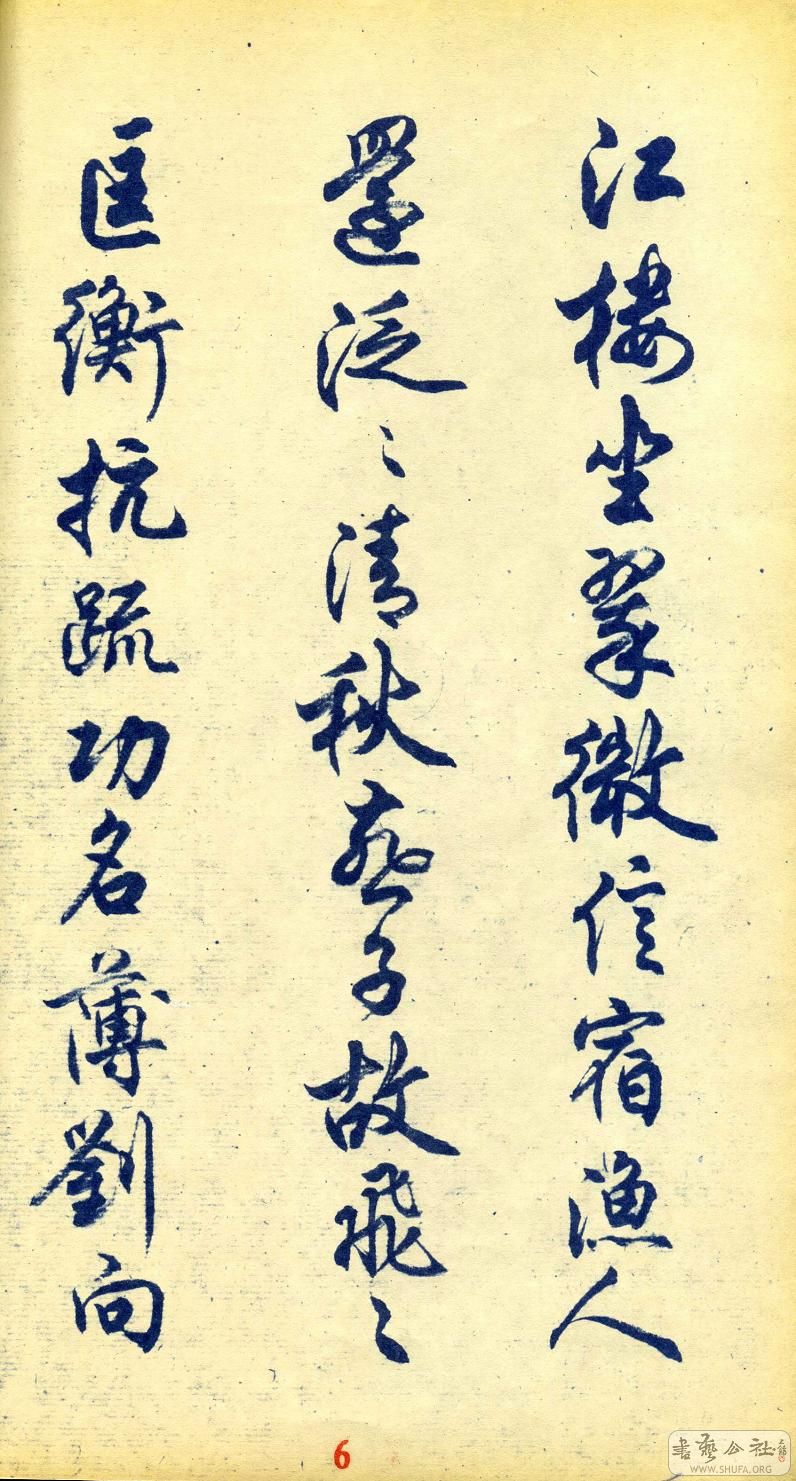 江樓坐翠微信宿漁人
還泛〻清秋燕子故飛〻
匡衡抗疏功名薄劉向
6
書藝公社
WWW.SHUFA.ORG